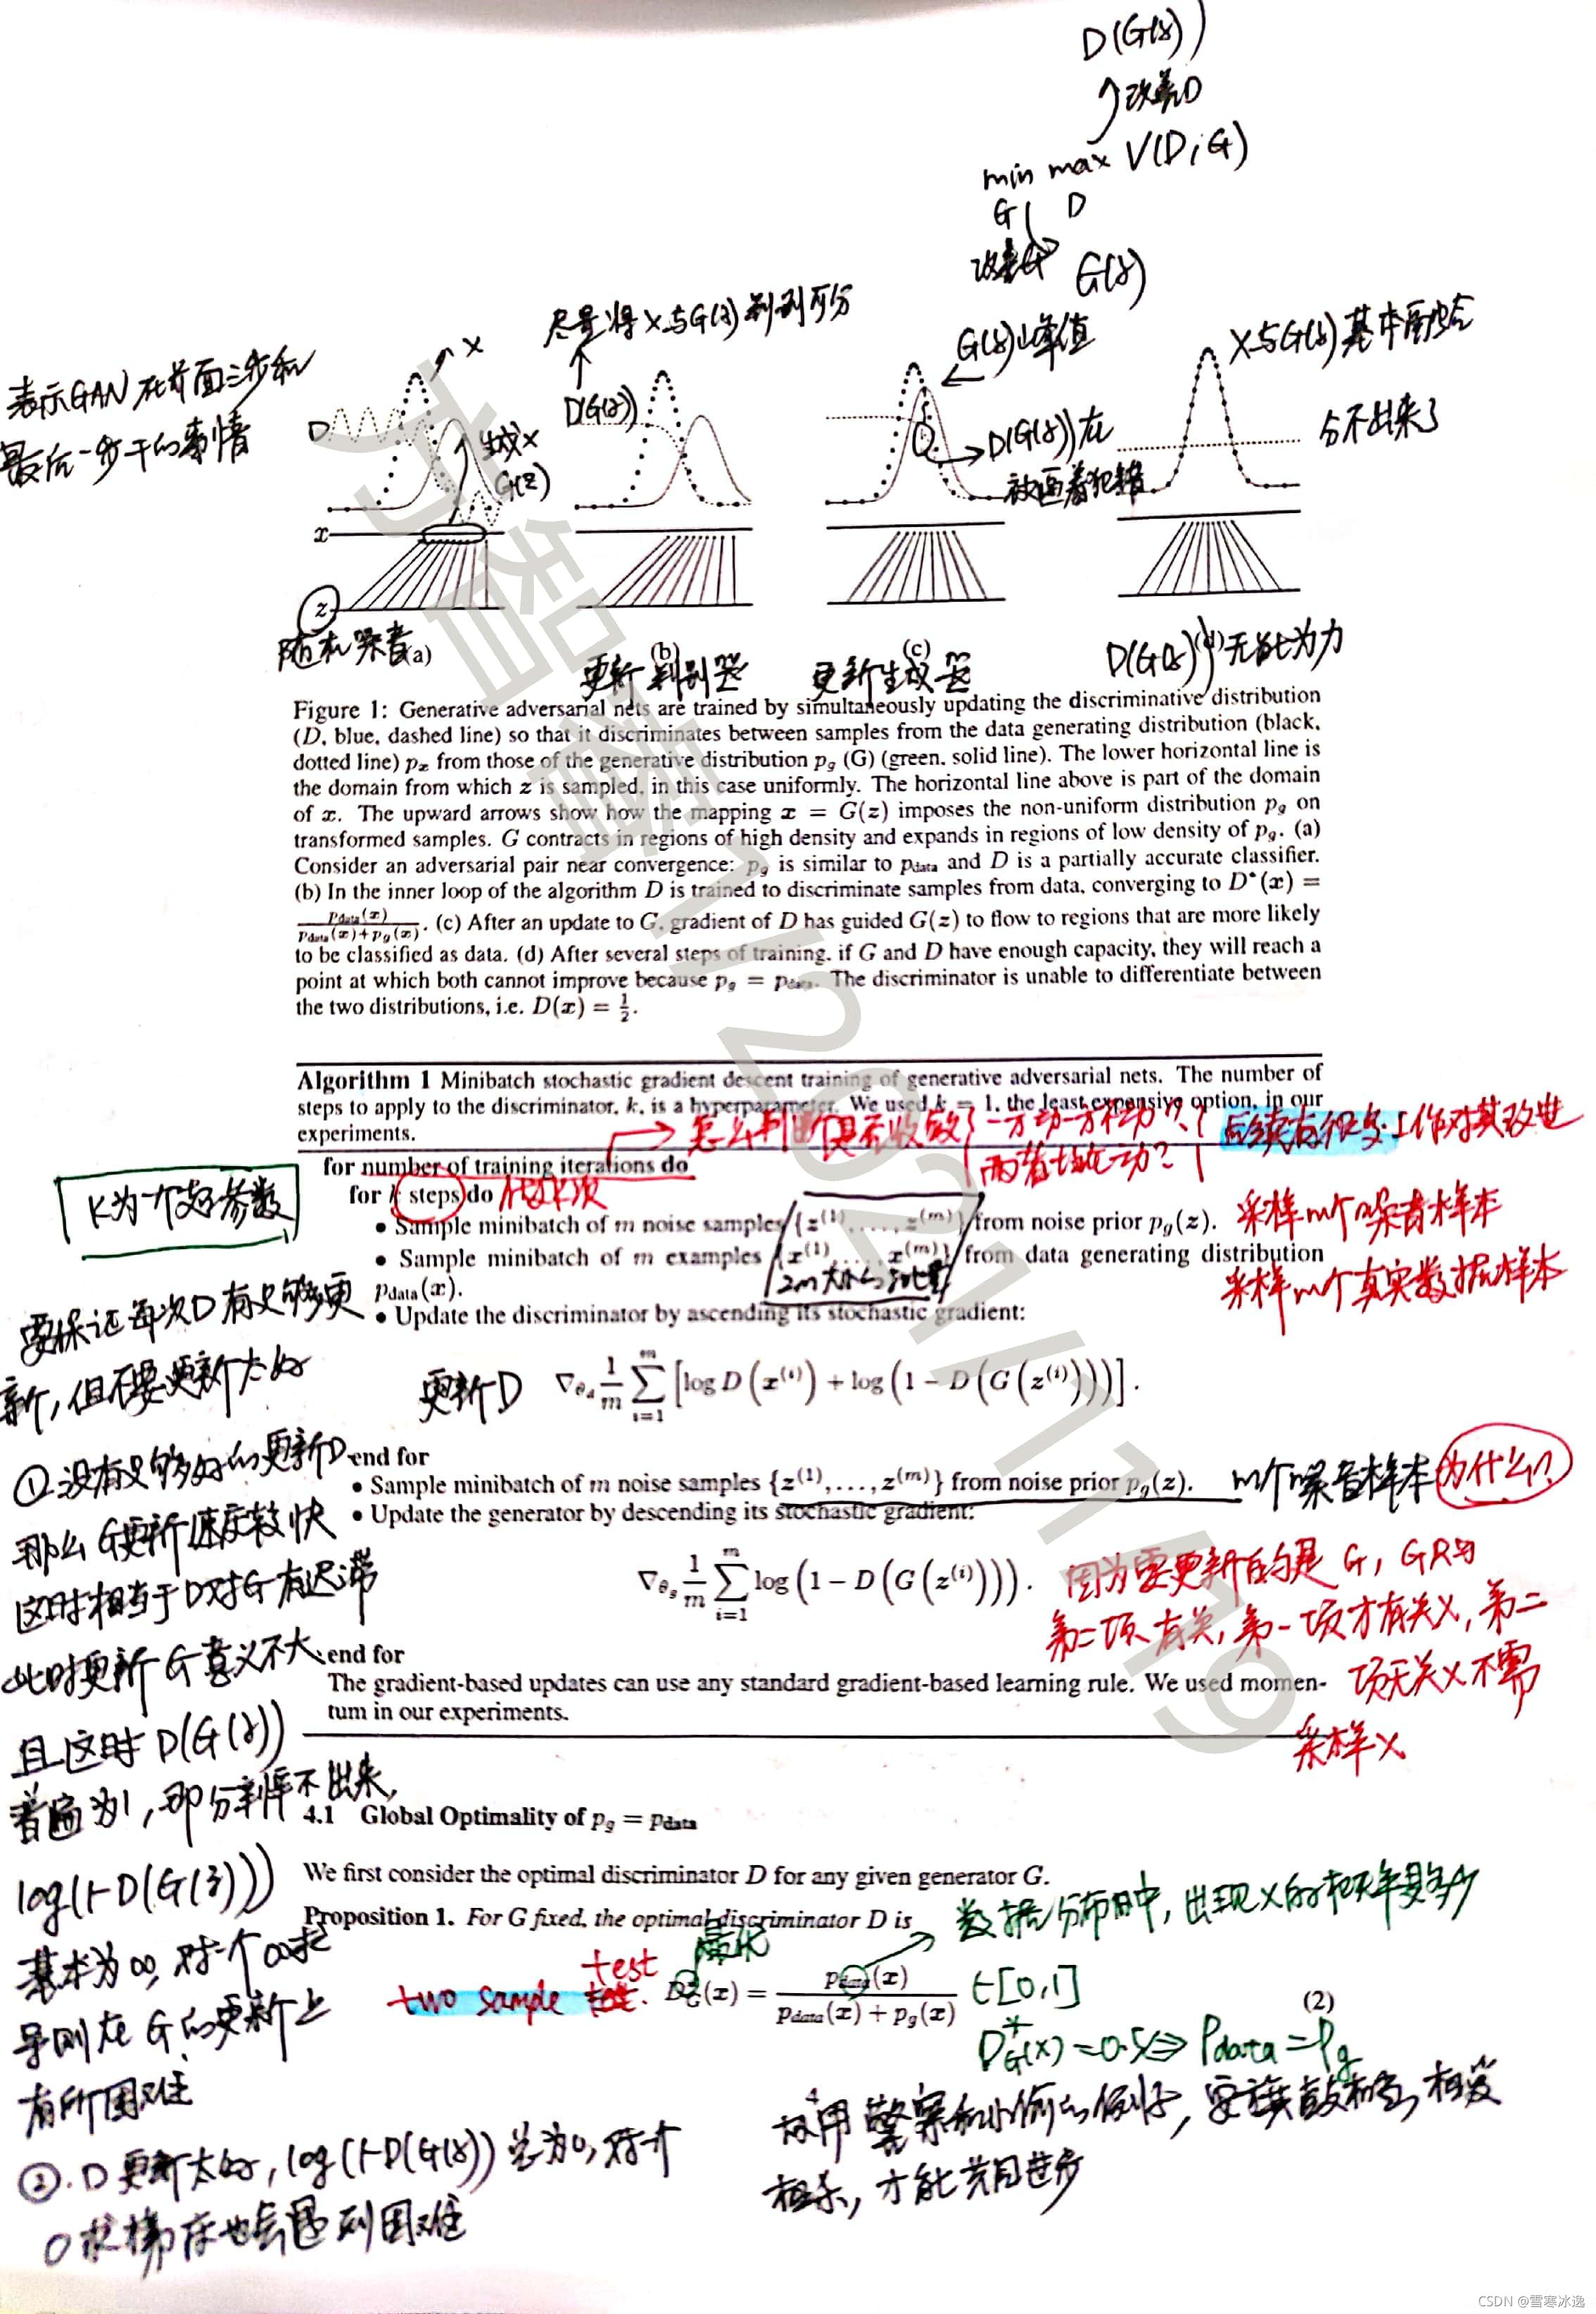 D(G(z))
改善D
min max V(D,G)
G D
改善G
G(z)
尽量将X与G(z)判别可分
G(z)峰值
X与G(z)基本融合
分不出来了
表示GAN在前面三步和
最后一步干的事情
X
D
生成X
G(z)
D(G(z))
D(G(z))在
被逼着犯错
x
z
随机噪音(a)
(b)
更新判别器
(c)
更新生成器
D(G(z))(d)无能为力
Figure 1: Generative adversarial nets are trained by simultaneously updating the discriminative distribution
(D, blue, dashed line) so that it discriminates between samples from the data generating distribution (black,
dotted line) px from those of the generative distribution pg (G) (green, solid line). The lower horizontal line is
the domain from which z is sampled, in this case uniformly. The horizontal line above is part of the domain
of x. The upward arrows show how the mapping x = G(z) imposes the non-uniform distribution pg on
transformed samples. G contracts in regions of high density and expands in regions of low density of pg. (a)
Consider an adversarial pair near convergence: pg is similar to pdata and D is a partially accurate classifier.
(b) In the inner loop of the algorithm D is trained to discriminate samples from data, converging to D*(x) =
pdata(x) / (pdata(x)+pg(x)). (c) After an update to G, gradient of D has guided G(z) to flow to regions that are more likely
to be classified as data. (d) After several steps of training, if G and D have enough capacity, they will reach a
point at which both cannot improve because pg = pdata. The discriminator is unable to differentiate between
the two distributions, i.e. D(x) = 1/2.
Algorithm 1 Minibatch stochastic gradient descent training of generative adversarial nets. The number of
steps to apply to the discriminator, k, is a hyperparameter. We used k = 1, the least expensive option, in our
experiments.
怎么判断是否收敛? 一方动一方不动??
两者都在动?
后续有很多工作对其改进
for number of training iterations do
for k steps do 迭代k次
K为一个超参数
• Sample minibatch of m noise samples {z(1), . . . , z(m)} from noise prior pg(z).
采样m个噪音样本
• Sample minibatch of m examples {x(1), . . . , x(m)} from data generating distribution
pdata(x).
2m大小的批量
采样m个真实数据样本
• Update the discriminator by ascending its stochastic gradient:
更新D ∇θd 1/m ∑i=1m [log D(x(i)) + log(1 − D(G(z(i))))].
end for
• Sample minibatch of m noise samples {z(1), . . . , z(m)} from noise prior pg(z).
m个噪音样本 为什么?
• Update the generator by descending its stochastic gradient:
∇θg 1/m ∑i=1m log(1 − D(G(z(i)))).
因为需更新的是G,G只与
第二项有关,第一项才有关x,第二
项无关x不需
采样x
end for
The gradient-based updates can use any standard gradient-based learning rule. We used momen-
tum in our experiments.
要保证每次D有足够更
新,但不要更新太好
①没有足够好的更新D
那么G更新速度较快
这时相当于D对G有迟滞
此时更新G意义不大
且这时D(G(z))
普遍为1,即分辨不出来,
log(1-D(G(z)))
基本为∞,对一个∞求
导则在G的更新上
有所困难
②.D更新太好,log(1-D(G(z)))总为0,对一个
0求梯度也会遇到困难
4.1 Global Optimality of pg = pdata
We first consider the optimal discriminator D for any given generator G.
Proposition 1. For G fixed, the optimal discriminator D is
数据分布中,出现x的概率是多少
最优
two sample test.
D*G(x) = pdata(x) / (pdata(x) + pg(x)) ∈[0,1]
(2)
D*G(x)=0.5⇒Pdata=Pg
4
故用警察和小偷的例子,要旗鼓相当,相爱
相杀,才能共同进步
方智睿1/2021/11/19
CSDN @雪寒冰逸